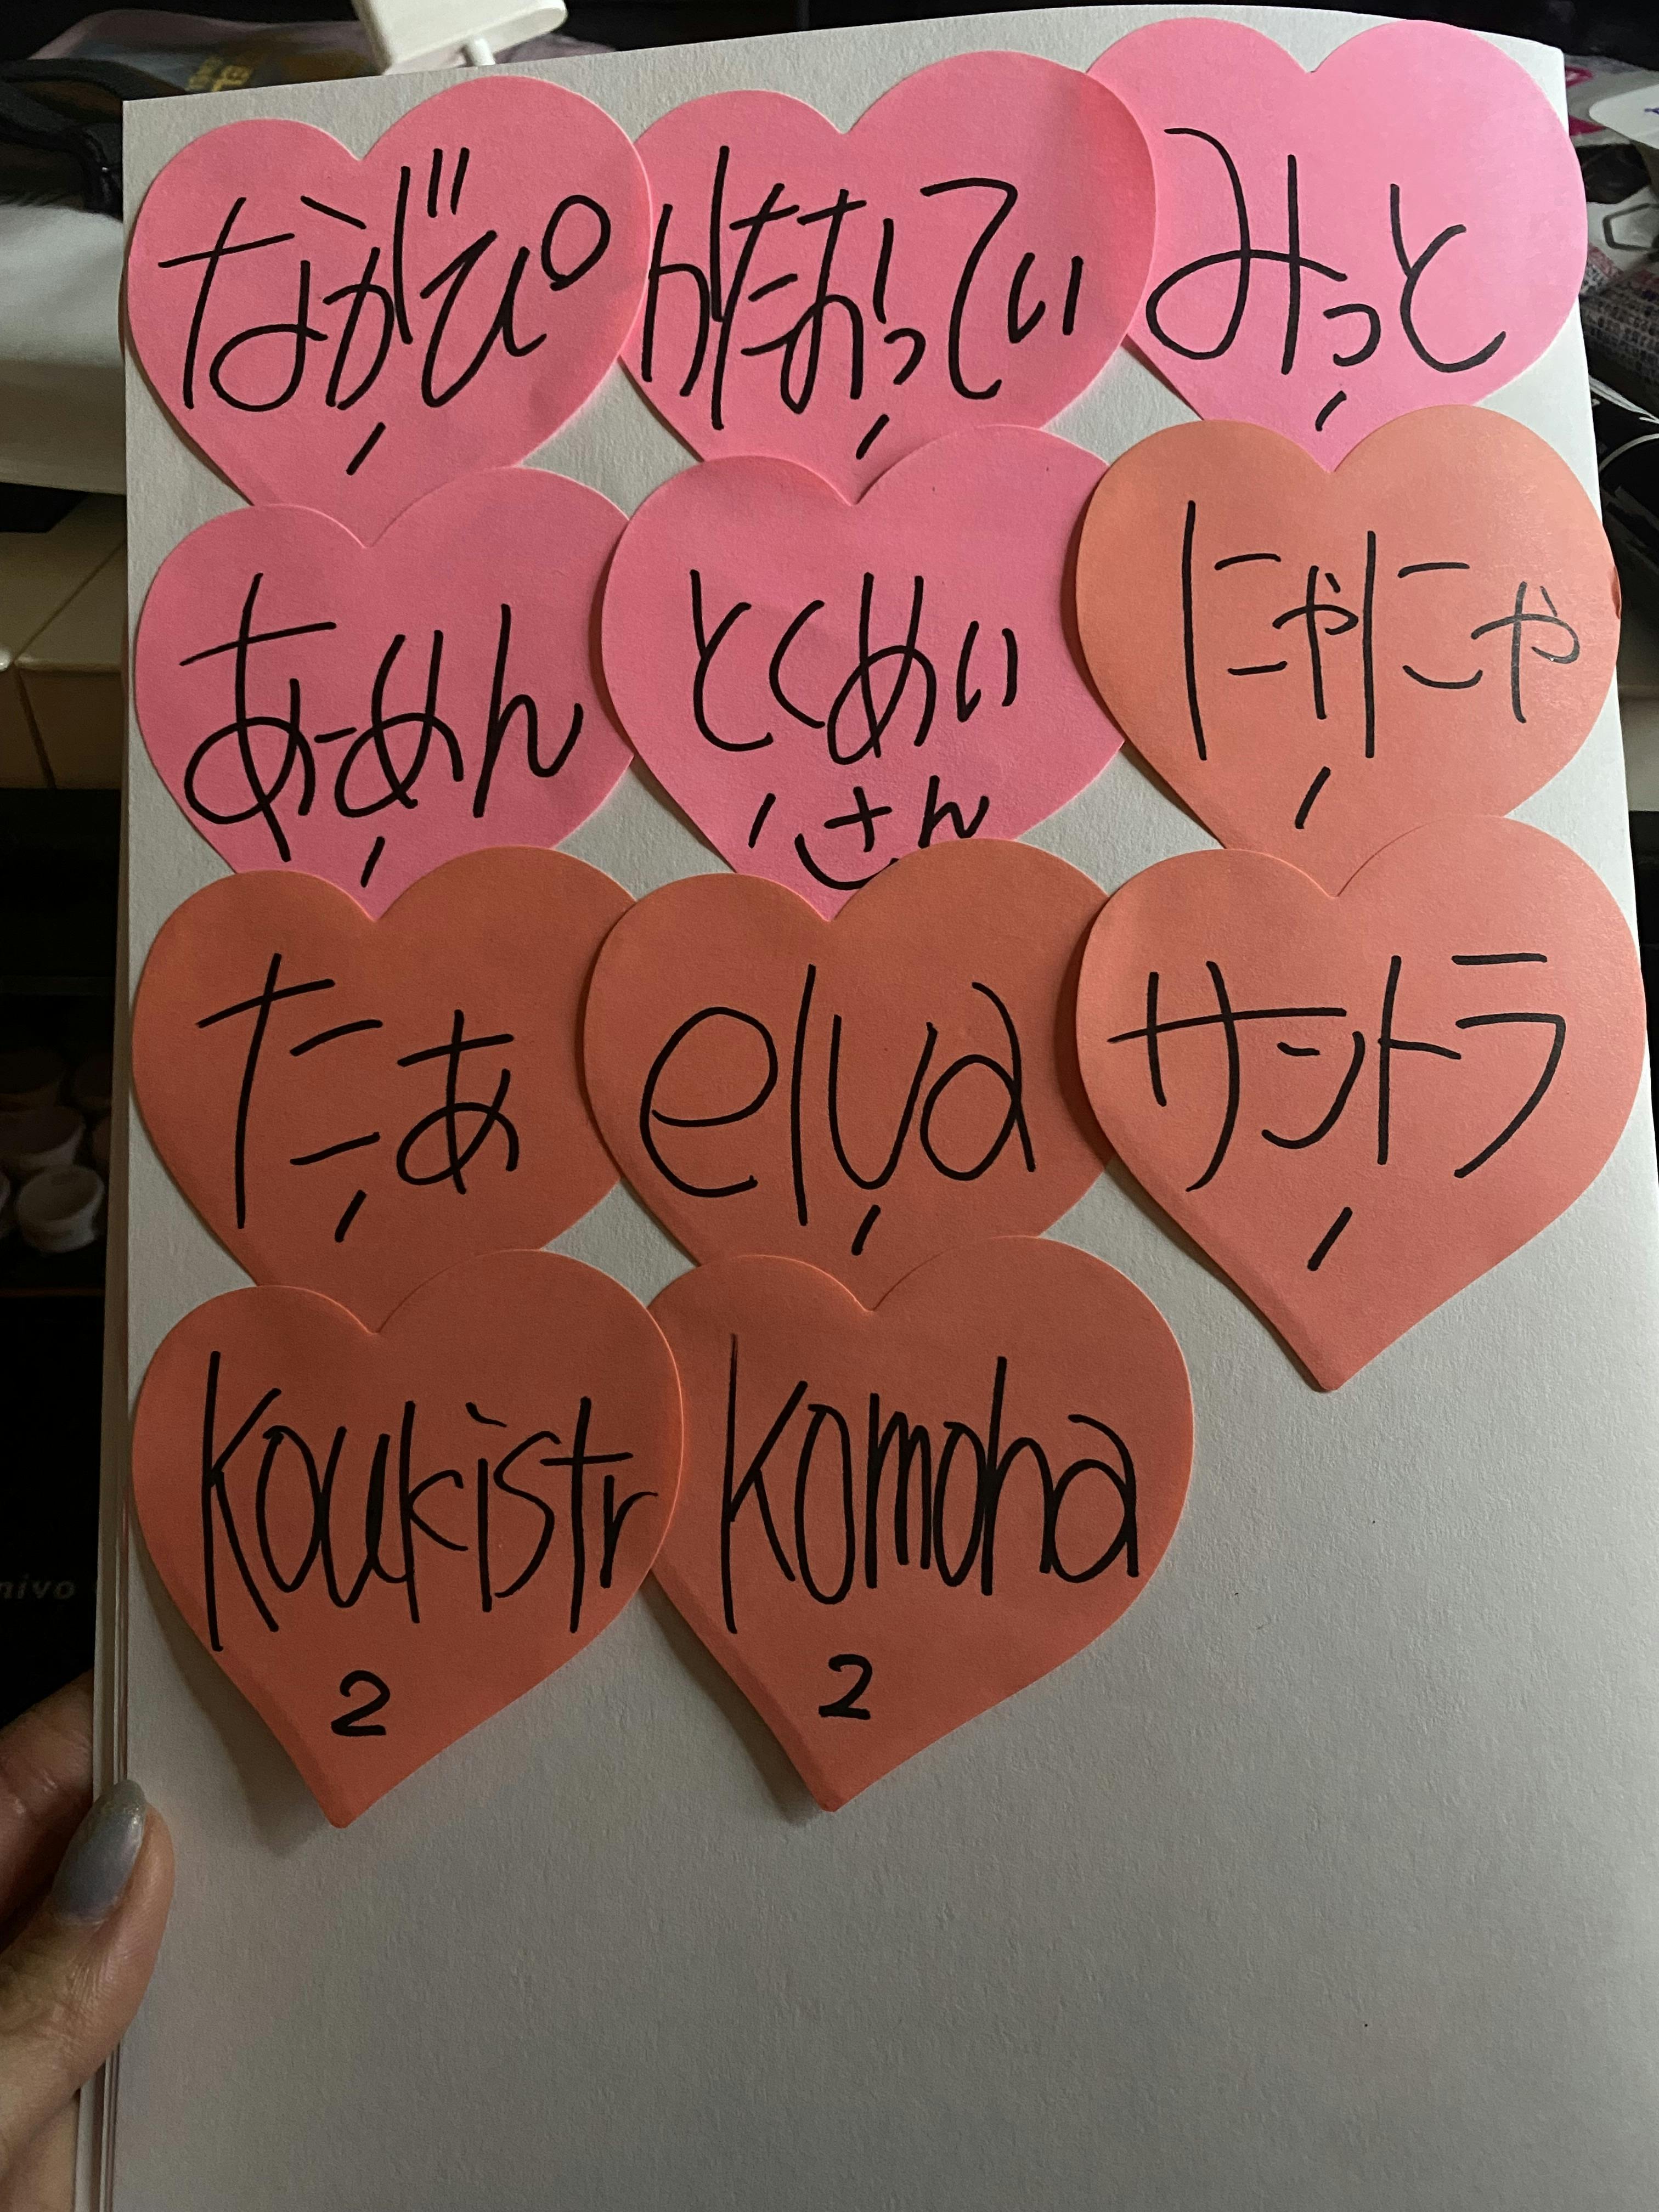 ながぴ
1
1
みっと
1
あーめん
1
とくめい
1 さん
にゃにゃ
1
たぁ
1
elva
1
サントラ
1
koukistr
2
komoha
2